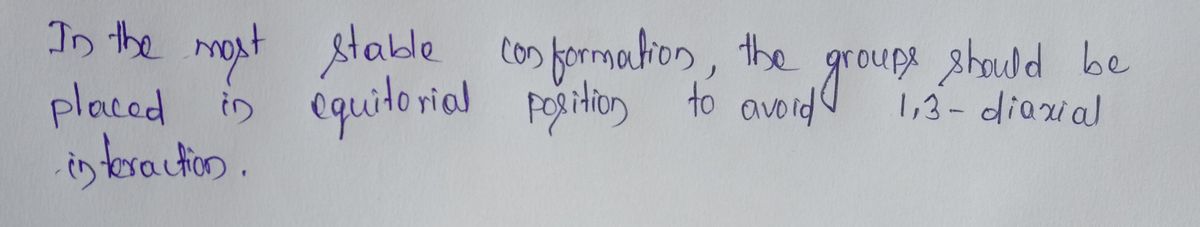 In the most stable conformation, the groups should be
placed in equitorial position to avoid 1,3-diaxial
interaction.